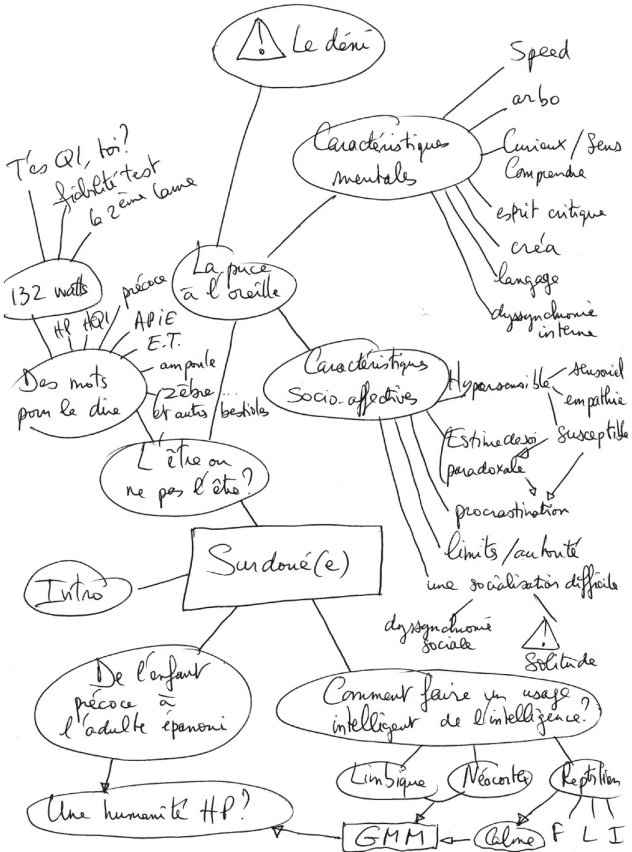 Le déni
Speed
arbo
Caractéristiques
mentales
Curieux / Sens
Comprendre
esprit critique
créa
langage
dyssynchronie
interne
T'es QI, toi?
fiabilité test
la 2ème lame
132 watts
La puce
à l'oreille
HP
HQI
précoce
APIE
E.T.
ampoule
zèbre...
et autres bestioles
Des mots
pour le dire
Caractéristiques
socio-affectives
Hypersensible
sensoriel
empathie
susceptible
Estime de soi
paradoxale
procrastination
limits / autorité
une socialisation difficile
dyssynchronie
sociale
Solitude
L'être ou
ne pas l'être?
Surdoué(e)
Intro
De l'enfant
précoce à
l'adulte épanoui
Comment faire un usage
intelligent de l'intelligence?
Limbique
Néocortex
Reptilien
Une humanité HP?
GMM
Calme
F L I